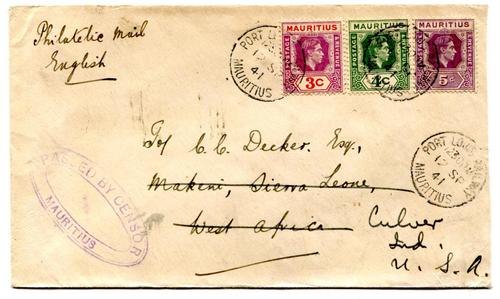 Philatelic Mail
English
MAURITIUS
POSTAGE
REVENUE
3c
MAURITIUS
POSTAGE
REVENUE
4c
MAURITIUS
POSTAGE
REVENUE
5c
PORT LOUIS
12 SP
41
MAURITIUS
To/ C. C. Decker, Esq.,
Makeni, Sierra Leone,
West Africa
Culver
Ind.
U. S. A.
PORT LOUIS
12 SP
41
MAURITIUS
PASSED BY CENSOR
MAURITIUS